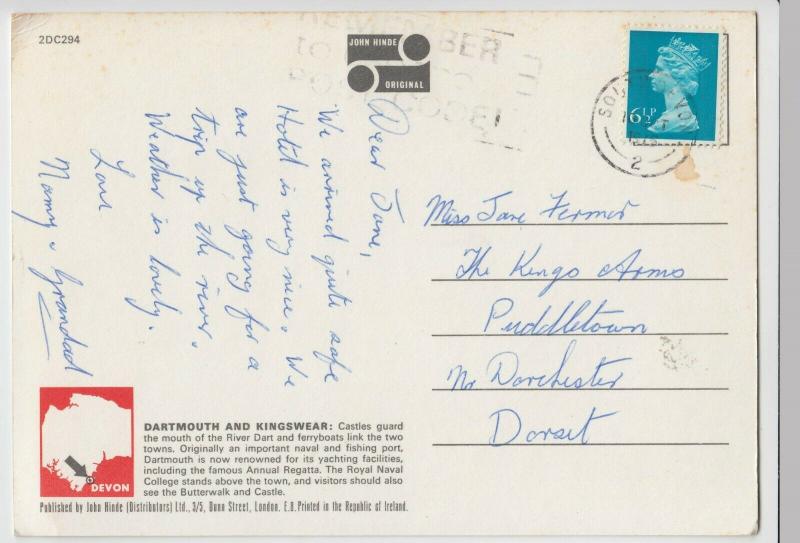 2DC294
JOHN HINDE
ORIGINAL
REMEMBER
TO
6½P
SOUTH DEVON
2
Dear Jane,
We arrived quite safe
Hotel is very nice. We
are just going for a
trip up the river.
Weather is lovely.
Love
Namy & Grandad
Miss Jane Fermor
The Kings Arms
Puddletown
Nr Dorchester
Dorset
DEVON
DARTMOUTH AND KINGSWEAR: Castles guard
the mouth of the River Dart and ferryboats link the two
towns. Originally an important naval and fishing port,
Dartmouth is now renowned for its yachting facilities,
including the famous Annual Regatta. The Royal Naval
College stands above the town, and visitors should also
see the Butterwalk and Castle.
Published by John Hinde (Distributors) Ltd., 3/5, Dunn Street, London. E.8. Printed in the Republic of Ireland.